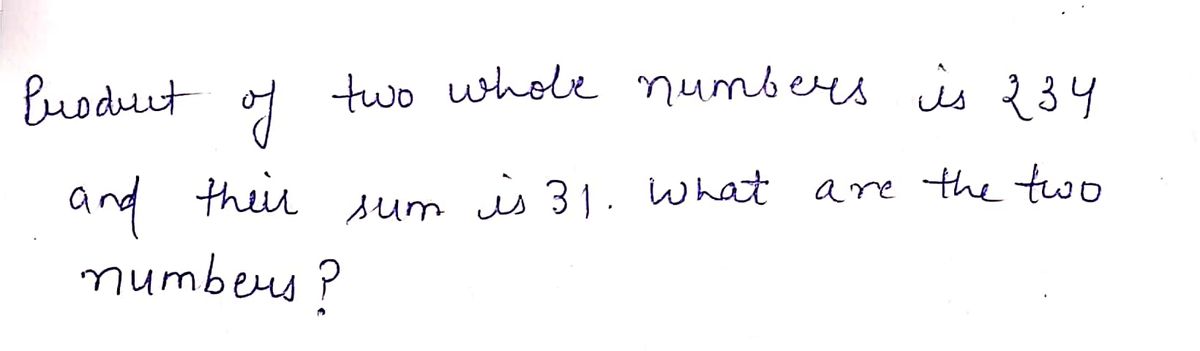 Product of two whole numbers is 234
and their sum is 31. What are the two
numbers?